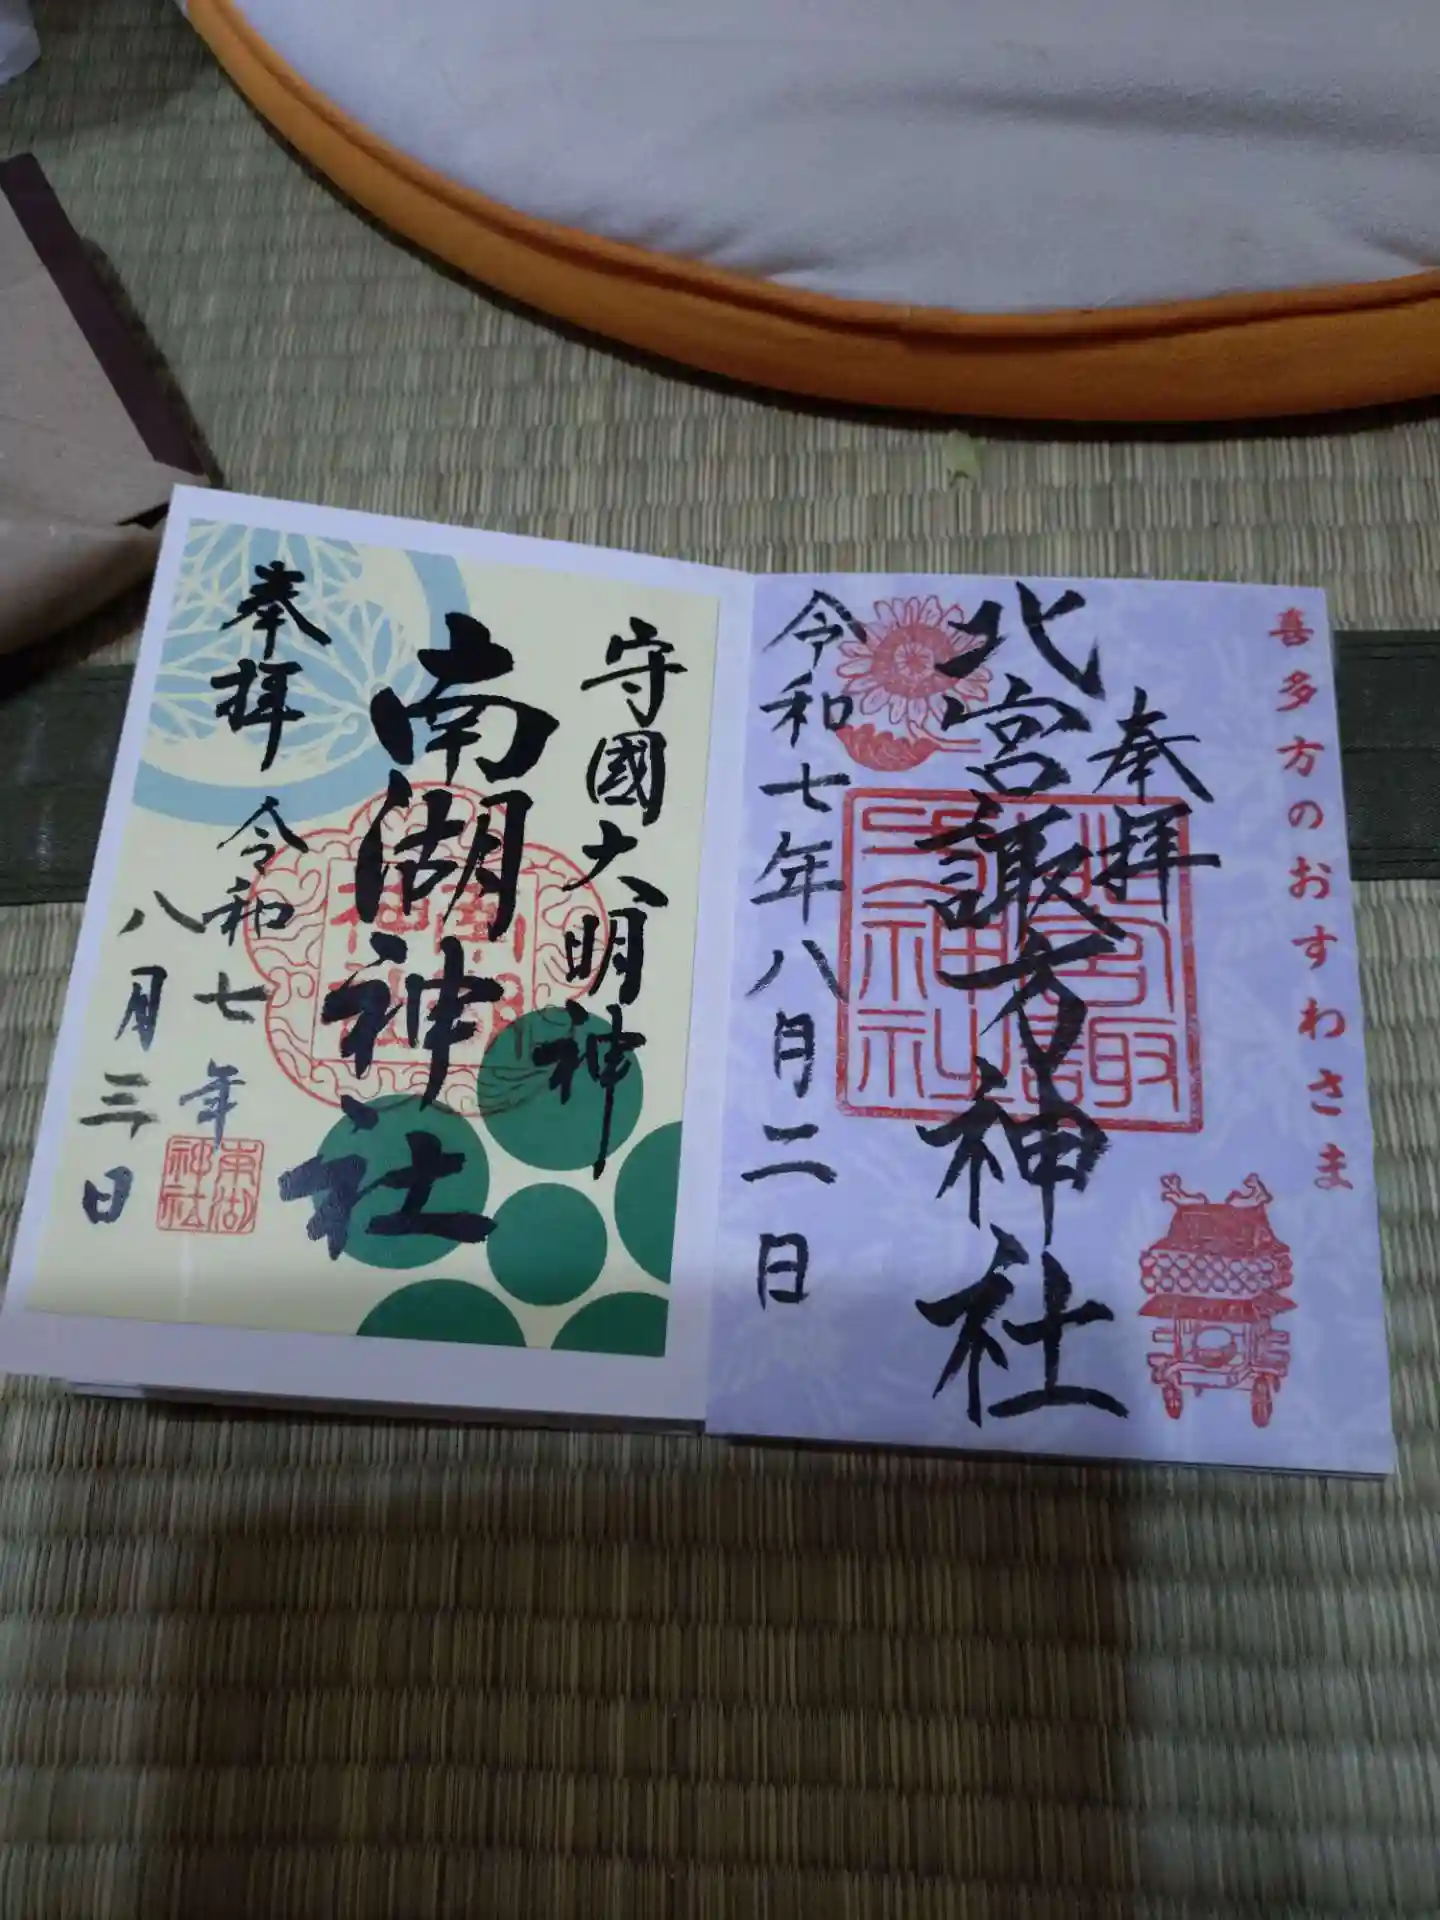 喜多方のおすわさま
奉拝
北宮諏方神社
令和七年八月二日
守國大明神
南湖神社
奉拝
令和七年
八月三日
南湖
神社